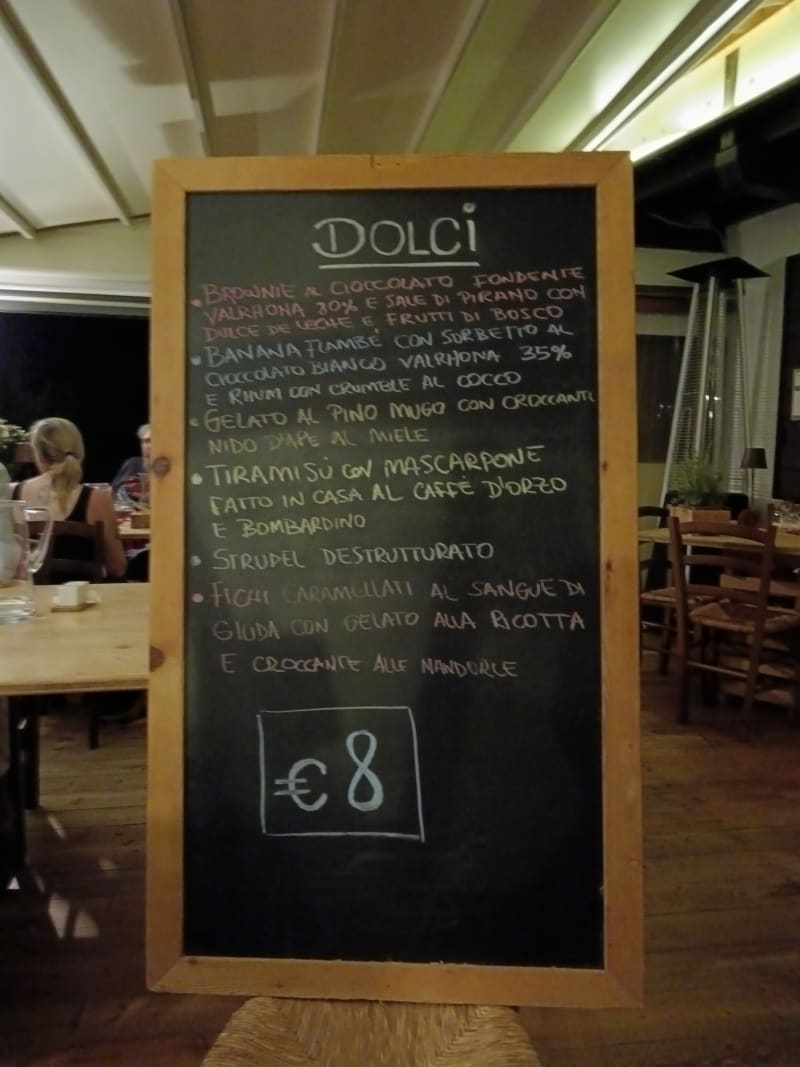 DOLCI
• BROWNIE AL CIOCCOLATO FONDENTE
VALRHONA 80% E SALE DI PIRANO CON
DULCE DE LECHE E FRUTTI DI BOSCO
• BANANA FLAMBÉ CON SORBETTO AL
CIOCCOLATO BIANCO VALRHONA 35%
E RHUM CON CRUMBLE AL COCCO
• GELATO AL PINO MUGO CON CROCCANTI
NIDO D'APE AL MIELE
• TIRAMISÙ CON MASCARPONE
FATTO IN CASA AL CAFFÈ D'ORZO
E BOMBARDINO
• STRUDEL DESTRUTTURATO
• FICHI CARAMELLATI AL SANGUE DI
GIUDA CON GELATO ALLA RICOTTA
E CROCCANTE ALLE MANDORLE
€ 8